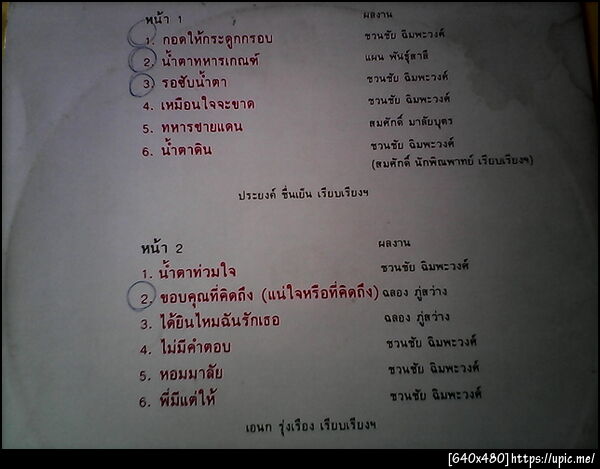 หน้า 1 ผลงาน
1. กอดให้กระดูกกรอบ ชวนชัย ฉิมพะวงศ์
2. น้ำตาทหารเกณฑ์ แผน พันธุ์สาลี
3. รอซับน้ำตา ชวนชัย ฉิมพะวงศ์
4. เหมือนใจจะขาด ชวนชัย ฉิมพะวงศ์
5. ทหารชายแดน สมศักดิ์ มาลัยบุตร
6. น้ำตาดิน ชวนชัย ฉิมพะวงศ์
(สมศักดิ์ นักพิณพาทย์ เรียบเรียงฯ)
ประยงค์ ชื่นเย็น เรียบเรียงฯ
หน้า 2 ผลงาน
1. น้ำตาท่วมใจ ชวนชัย ฉิมพะวงศ์
2. ขอบคุณที่คิดถึง (แน่ใจหรือที่คิดถึง) ฉลอง ภู่สว่าง
3. ได้ยินไหมฉันรักเธอ ฉลอง ภู่สว่าง
4. ไม่มีคำตอบ ชวนชัย ฉิมพะวงศ์
5. หอมมาลัย ชวนชัย ฉิมพะวงศ์
6. พี่มีแต่ให้ ชวนชัย ฉิมพะวงศ์
เอนก รุ่งเรือง เรียบเรียงฯ
[640x480]https://upic.me/